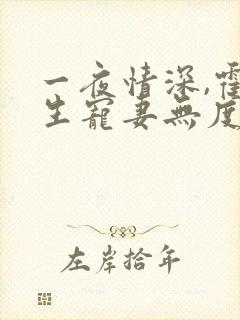 一夜情深,霍
生寵妻無度
左岸拾年